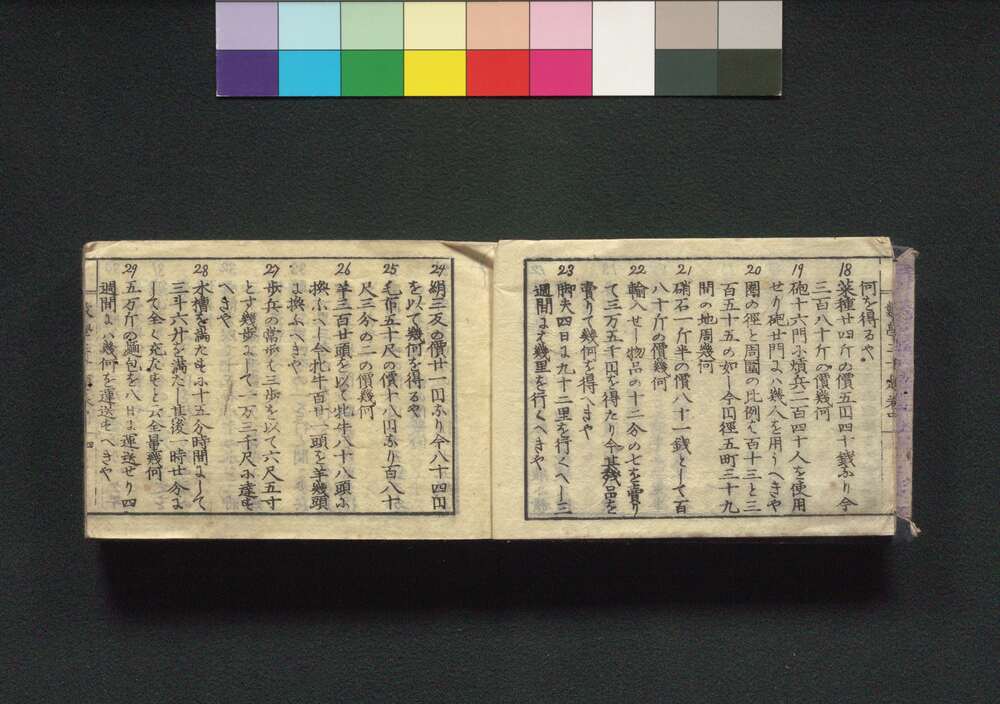 何を得るや
18 菜種廿四斤の價五円四十錢なり今
三百八十斤の價幾何
19 砲十六門小墳兵二百四十人を使用
せり砲廿門よハ幾人を用うへきや
20 圏の徑と周圍の比例ハ百十三と三
百五十五の如し今円徑五町三十九
間の地周幾何
21 硝石一斤半の價八十一錢として百
八十斤の價幾何
22 輸入せし物品の十二分の七を賣り
て三万五千円を得たり今其幾品を
賣りて幾何を得へきや
23 脚夫四日よ九十二里を行くへし三
週間よ幾里を行くへきや
24 絹三反の價廿一円なり今八十四円
を以て幾何を得るや
25 毛布五十尺の價十八円なり百八十
尺三分の二の價幾何
26 羊三百廿頭を以て牝牛八十八頭ふ
換ふへし今牝牛百廿一頭を羊幾頭
よ換ふへきや
27 歩兵の常歩ハ三歩を以て六尺五寸
とす幾歩よして一万三千尺小達も
へきや
28 水槽を満たも小十五分時間よして
三斗六升を満たし其後一時廿分よ
して全く充たもと云全量幾何
29 五万斤の麺包を八日よ運送せり四
週間よ幾何を運送もへきや
四